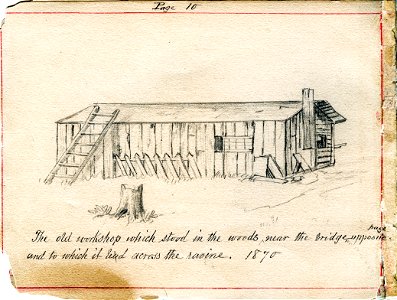 Page 10
page
The old workshop which stood in the woods, near the Bridge, opposite
and to which it lead across the ravine. 1870